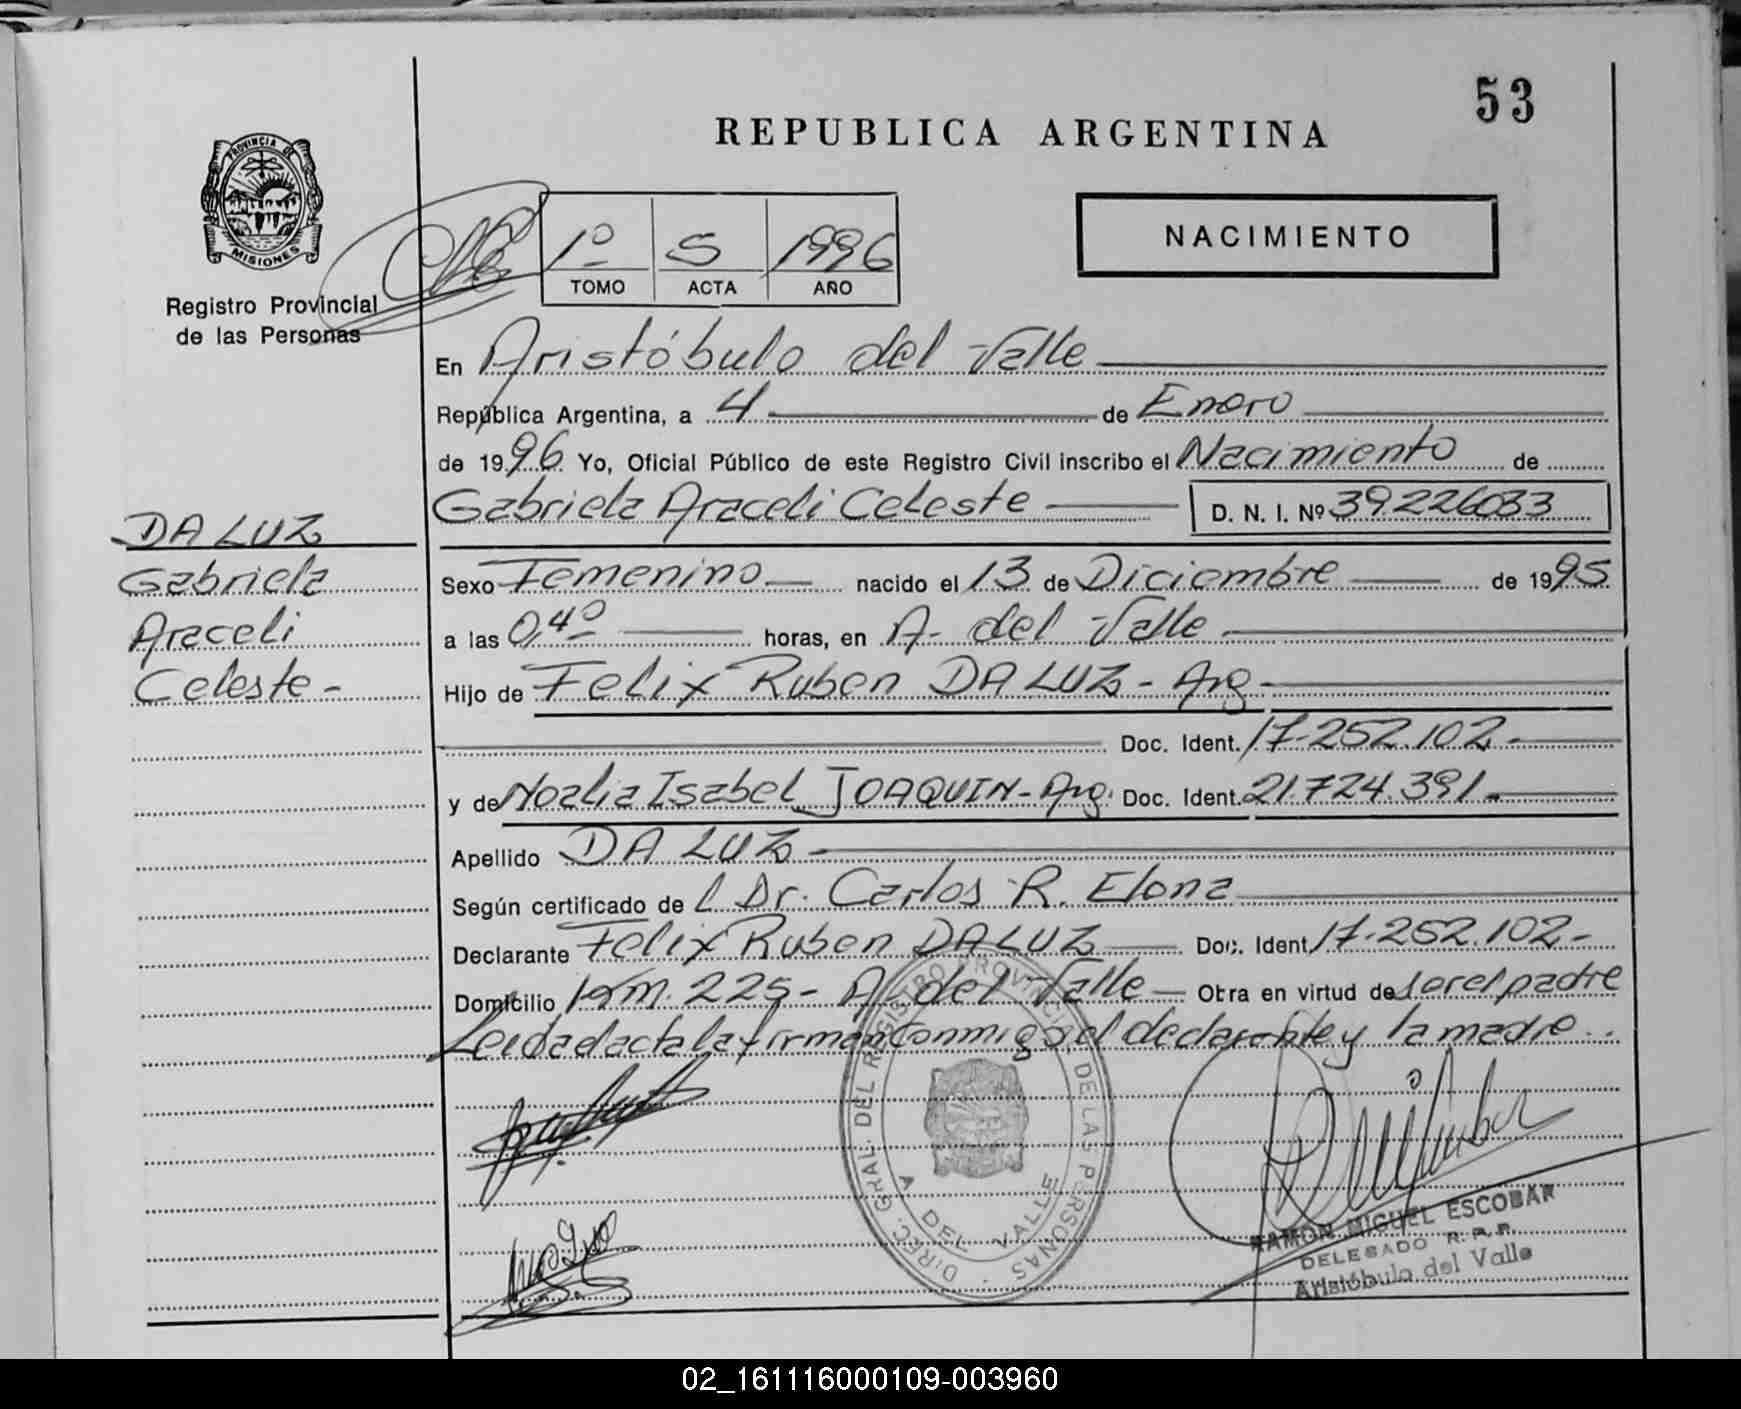 53
REPUBLICA ARGENTINA
PROVINCIA DE
MISIONES
Registro Provincial
de las Personas
1º S 1996
TOMO ACTA AÑO
NACIMIENTO
En Aristóbulo del Valle
República Argentina, a 4 de Enero
de 1996 Yo, Oficial Público de este Registro Civil inscribo el Nacimiento de
Gabriela Araceli Celeste D. N. I. Nº 39.226033
DA LUZ
Gabriela
Araceli
Celeste-
Sexo Femenino nacido el 13 de Diciembre de 1995
a las 0,4º horas, en A. del Valle
Hijo de Felix Ruben DA LUZ - Arg-
Doc. Ident. 17.252.102.
y de Noelia Isabel JOAQUIN - Arg. Doc. Ident. 21.724.391.
Apellido DA LUZ
Según certificado de l Dr. Carlos R.
Declarante Felix Ruben DA LUZ Doc. Ident. 17.252.102-
Domicilio Km. 225 - A. del Valle Obra en virtud de ser el padre
Leida el acta la firman conmigo, el declarante y la madre..
DIREC. GRAL. DEL REGISTRO PROVINCIAL DE LAS PERSONAS
A DEL VALLE
RAMON MIGUEL ESCOBAR
DELEGADO R. P. P.
Aristóbulo del Valle
02_161116000109-003960